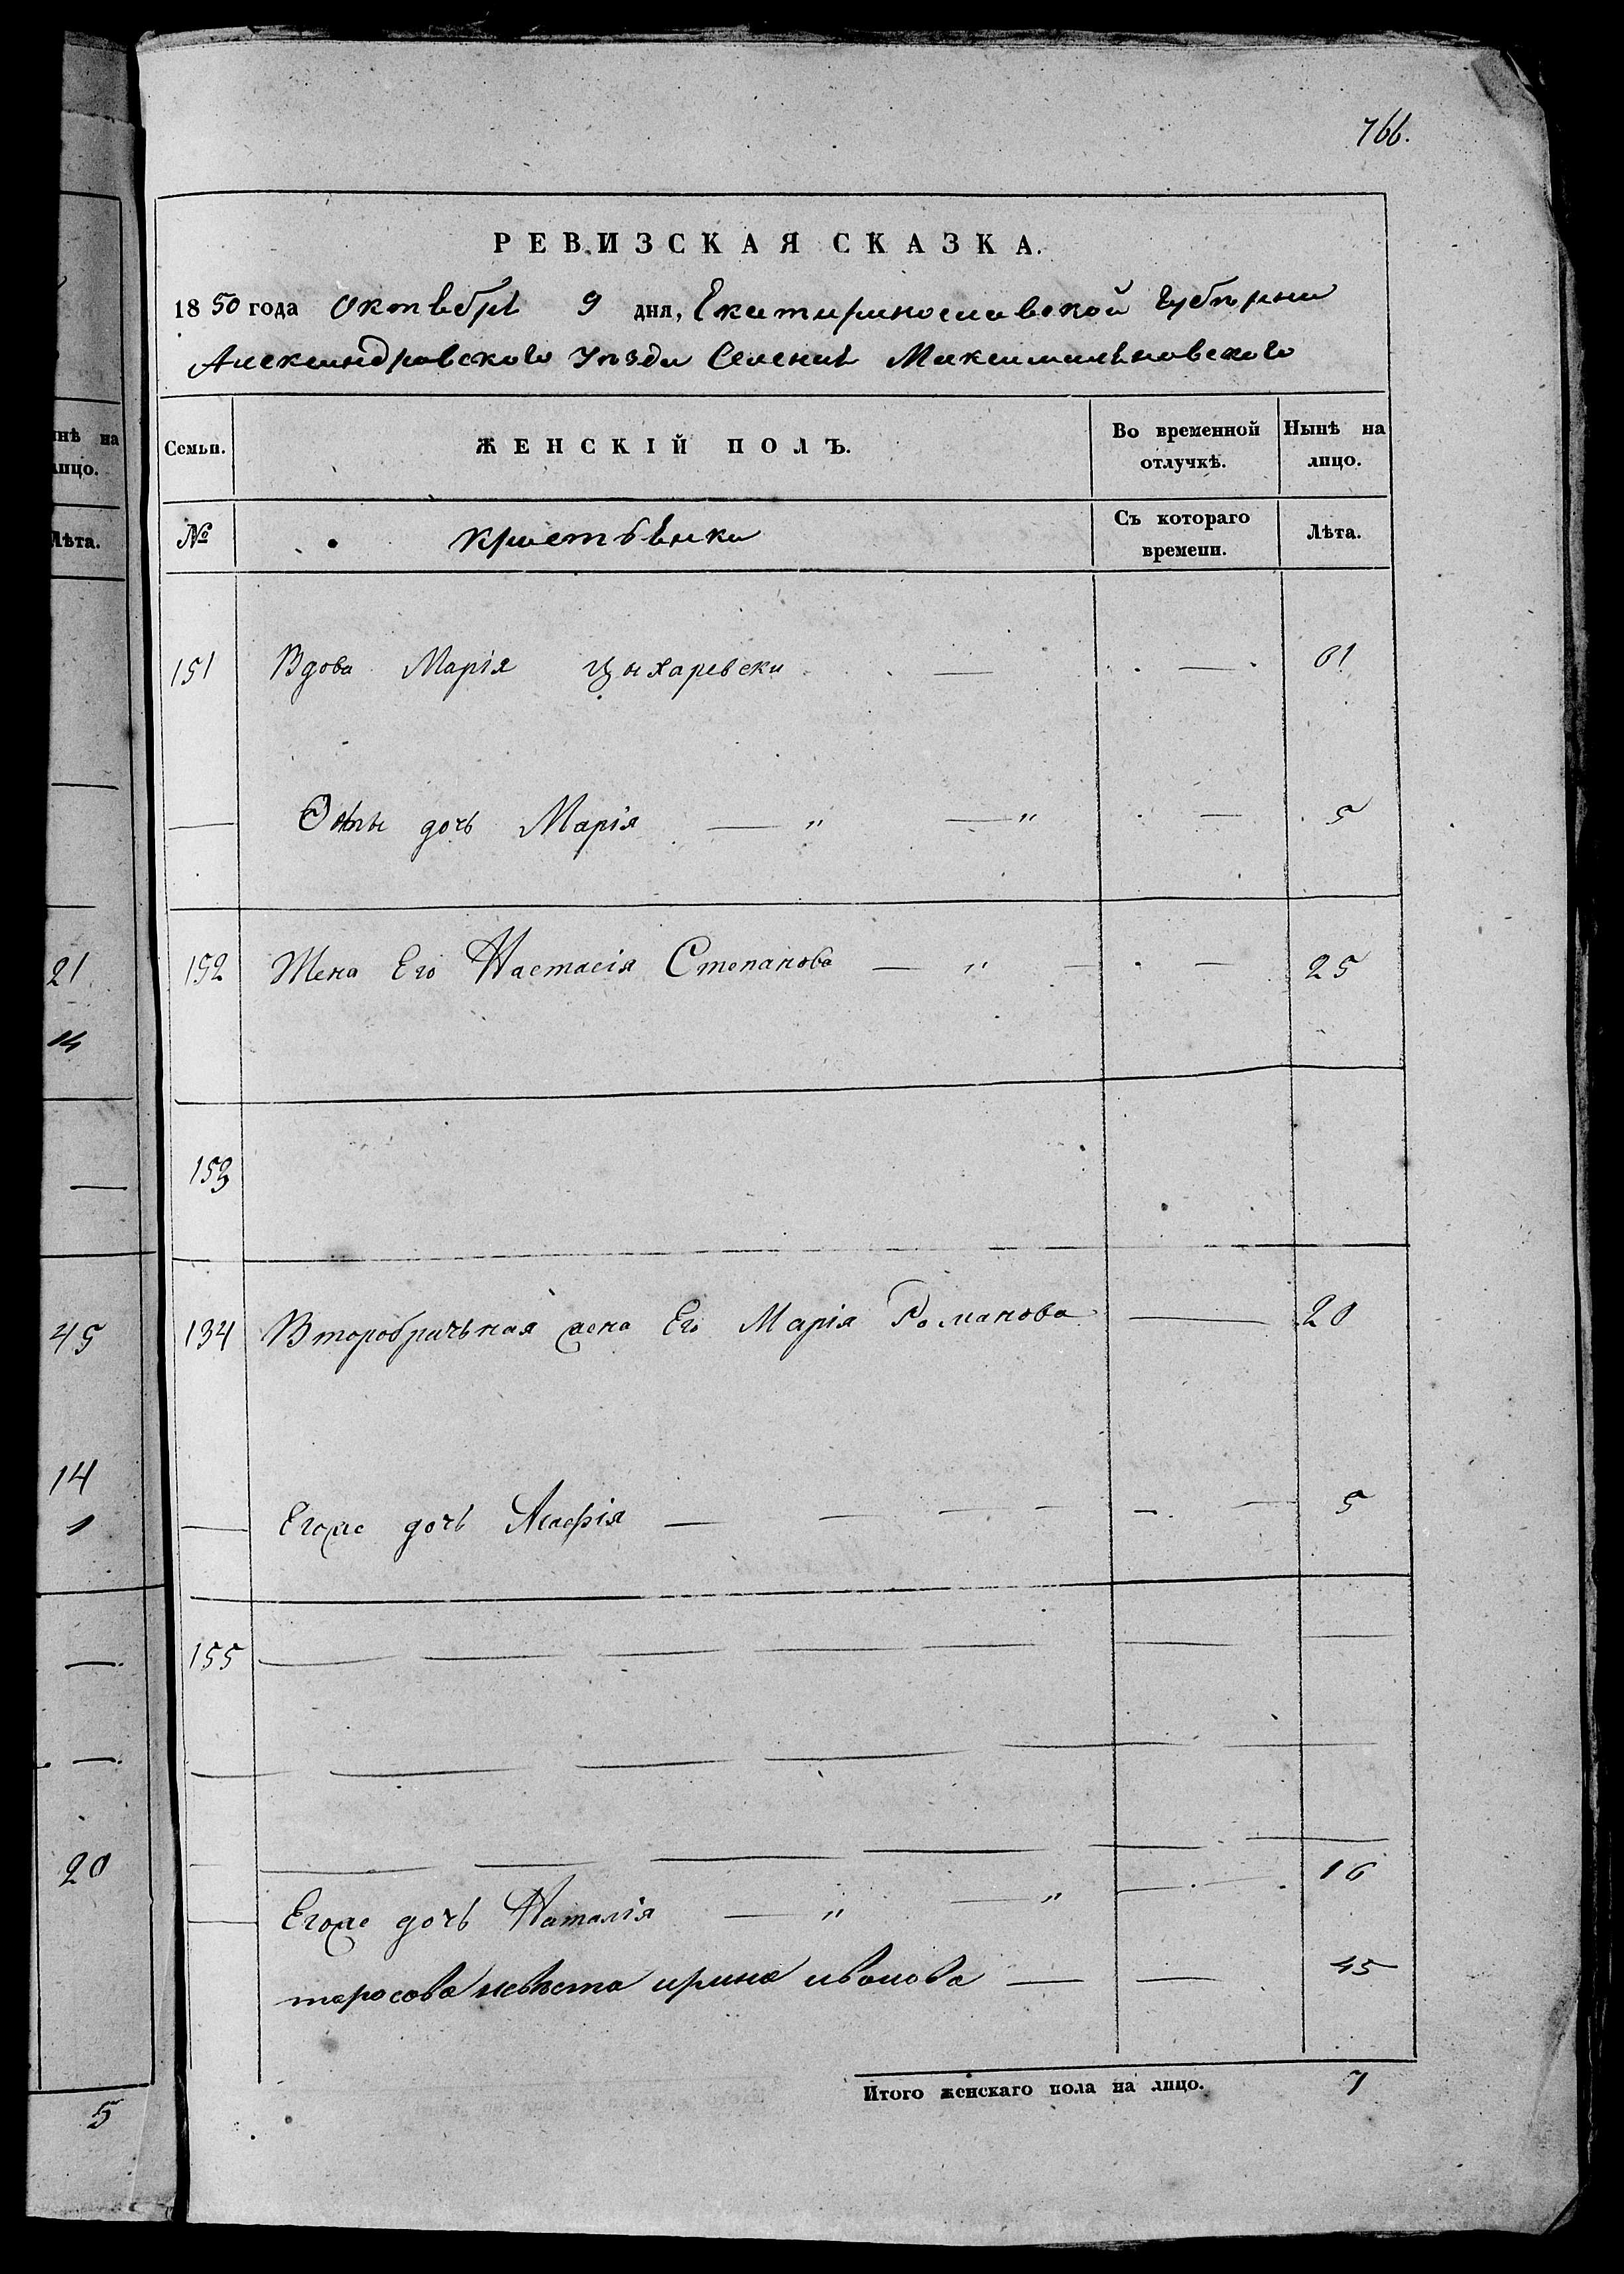 766.
РЕВИЗСКАЯ СКАЗКА.
1850 года Октебрѣ 9 дня, Екатириносшавской Губѣрнии
Александровского Уѣзда Селениѣ Максимилѣновского
Семьи. ЖЕНСКІЙ ПОЛЪ. Во временной отлучкѣ. Нынѣ на лицо.
№ Съ котораго времени. Лѣта.
151 Вдова Марія 61
дочь Марія — " — " — 5
152 Жена Его Настасія Степанова — " — — 25
153
134 Жена Его Марія Романова — 20
Егоже дочь — — — — — — 5
155 — — — — — — —
Егоже дочь Наталія — " — " — 16
таросова невѣста ирина иванова — — 45
Итого женскаго пола на лицо. 7
нѣ на
лицо.
Лѣта.
21
14
—
45
14
1
—
—
20
5